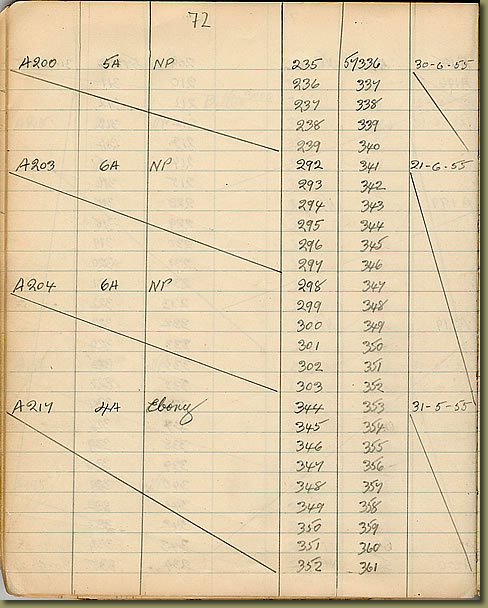 72
A200 5A NP 235 57336 30-6-55
236 337
237 338
238 339
239 340
A203 6A NP 292 341 21-6-55
293 342
294 343
295 344
296 345
297 346
A204 6A NP 298 347
299 348
300 349
301 350
302 351
303 352
A217 4A Ebony 344 353 31-5-55
345 354
346 355
347 356
348 357
349 358
350 359
351 360
352 361